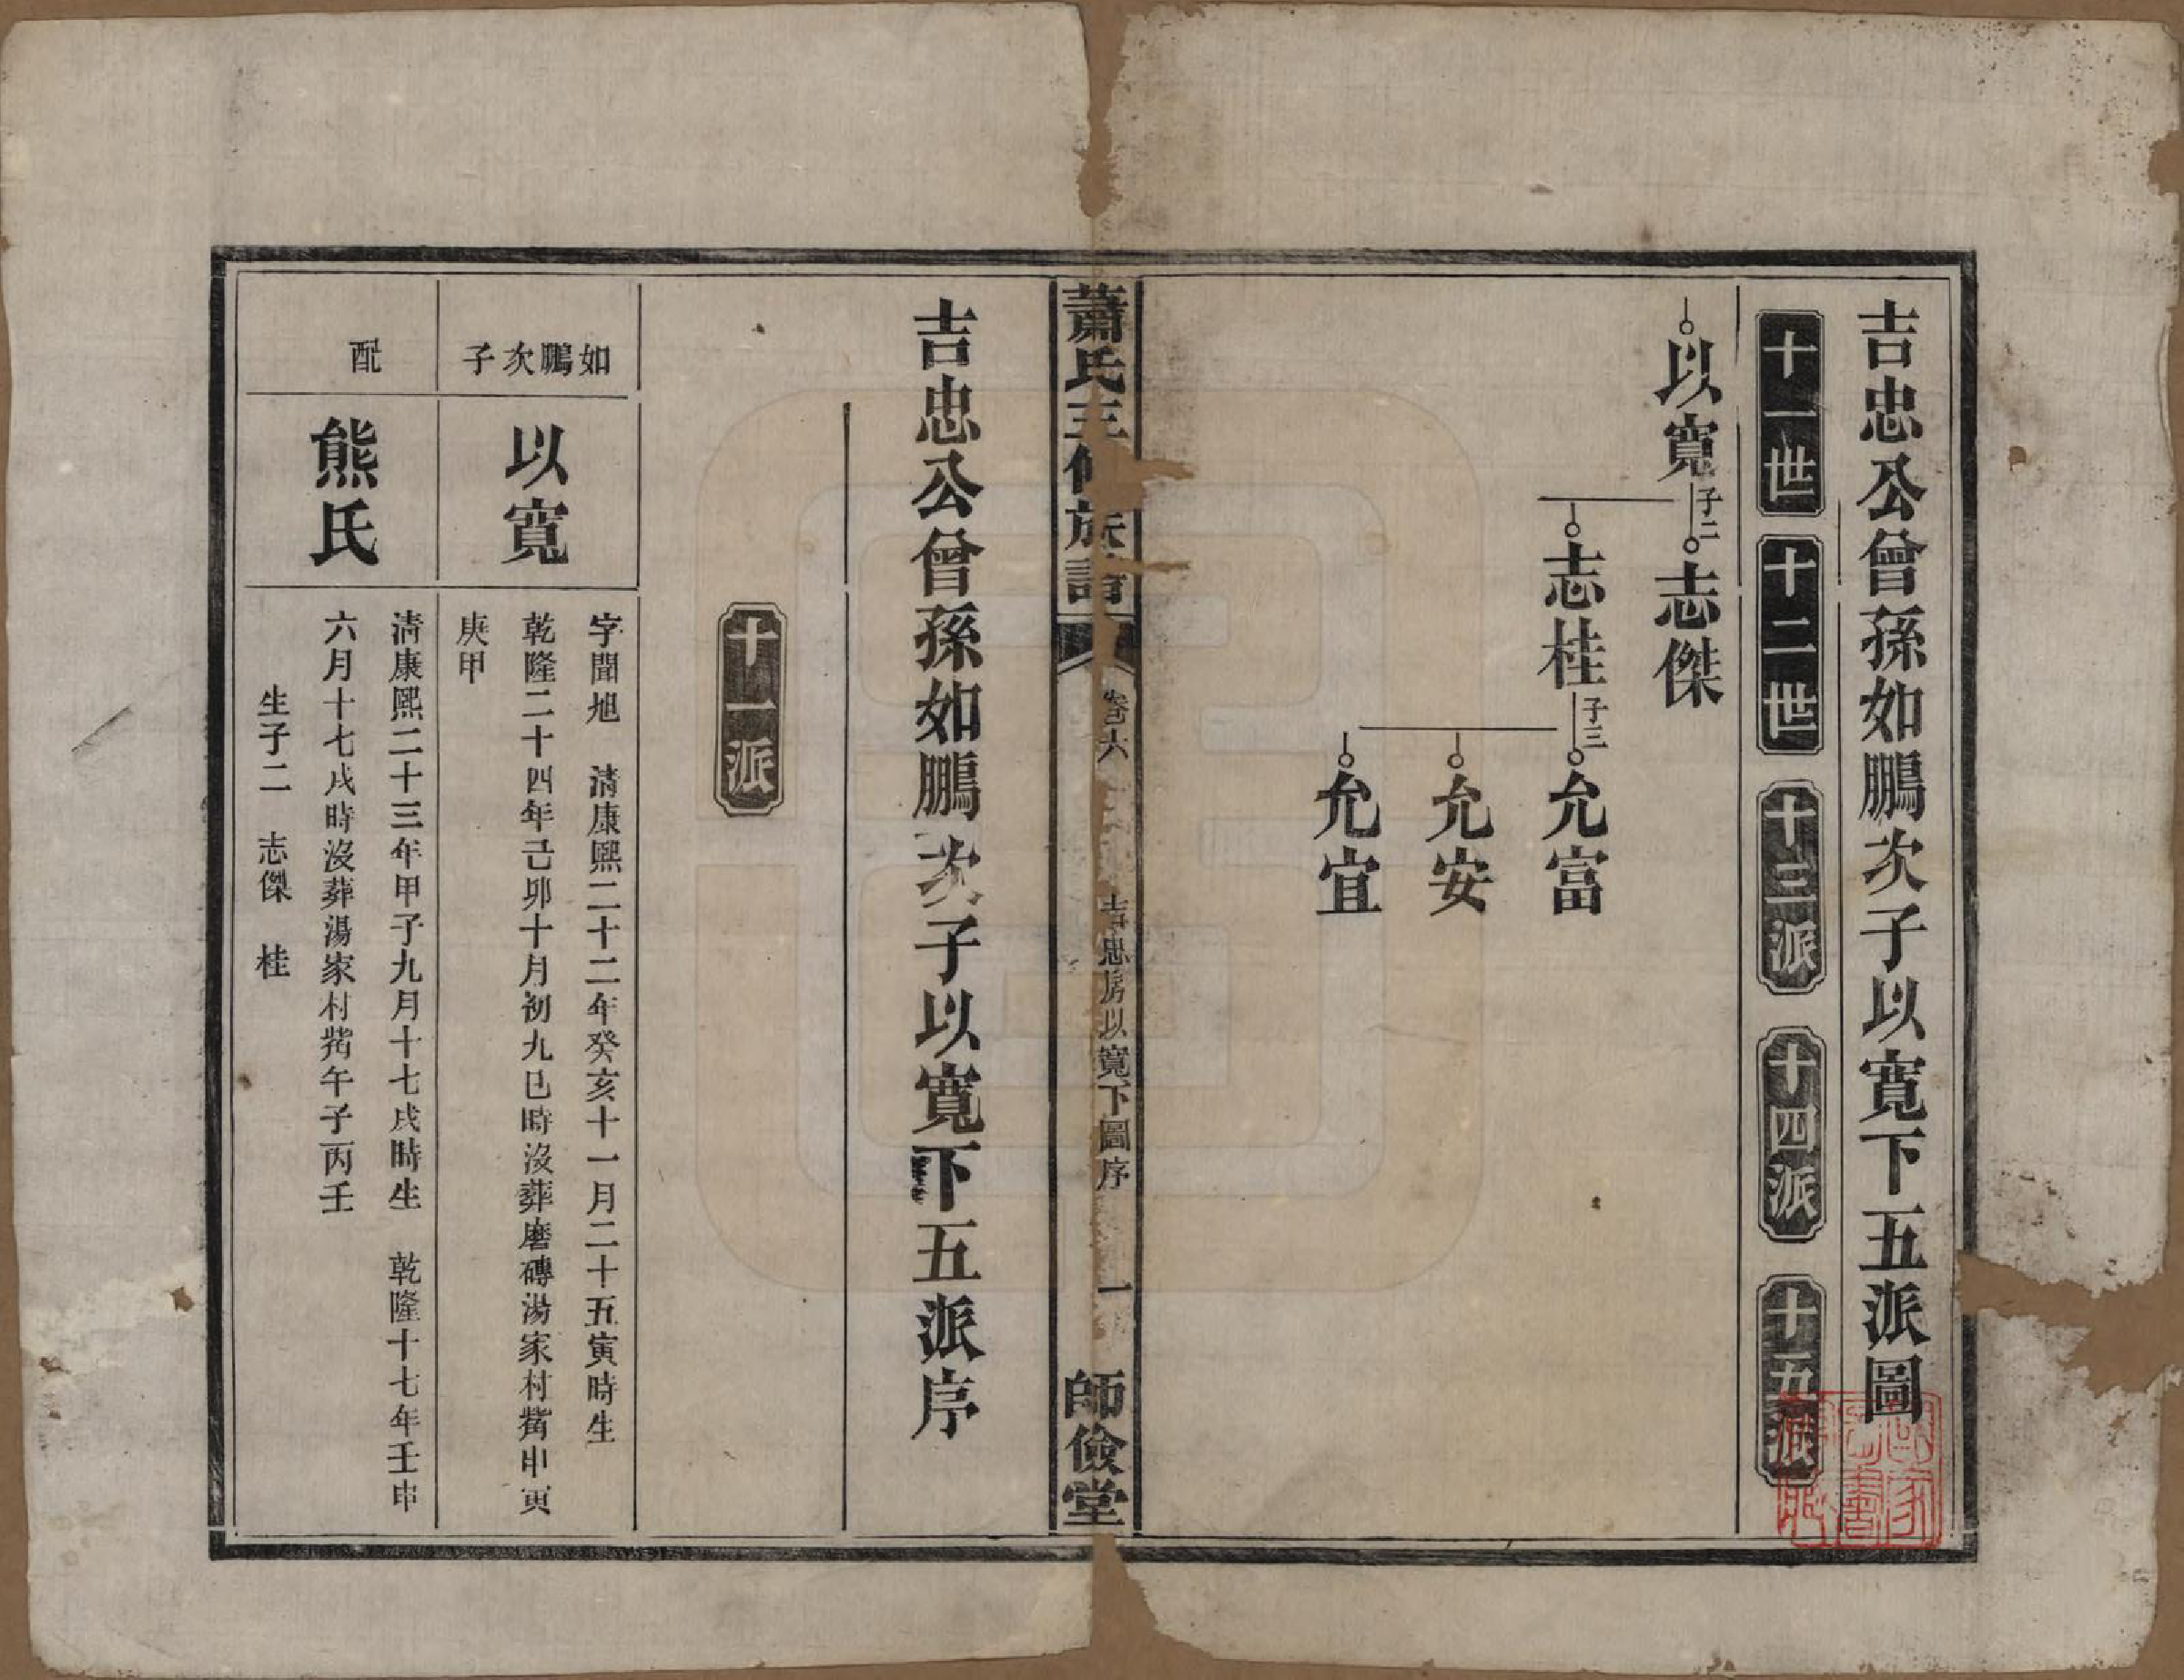 吉忠公曾孫如鵬次子以寬下五派圖
十一世
十二世
十三派
十四派
十五派
以寬 子二
志傑
志桂 子三
允富
允安
允宜
蕭氏三修族譜
卷六
吉忠房以寬下圖序
一
師儉堂
吉忠公曾孫如鵬次子以寬下五派序
十一派
如鵬次子
以寬
字聞旭 清康熙二十二年癸亥十一月二十五寅時生
乾隆二十四年己卯十月初九巳時沒葬磨磚湯家村觜申寅
庚甲
配
熊氏
清康熙二十三年甲子九月十七戌時生 乾隆十七年壬申
六月十七戌時沒葬湯家村觜午子丙壬
生子二 志傑 桂